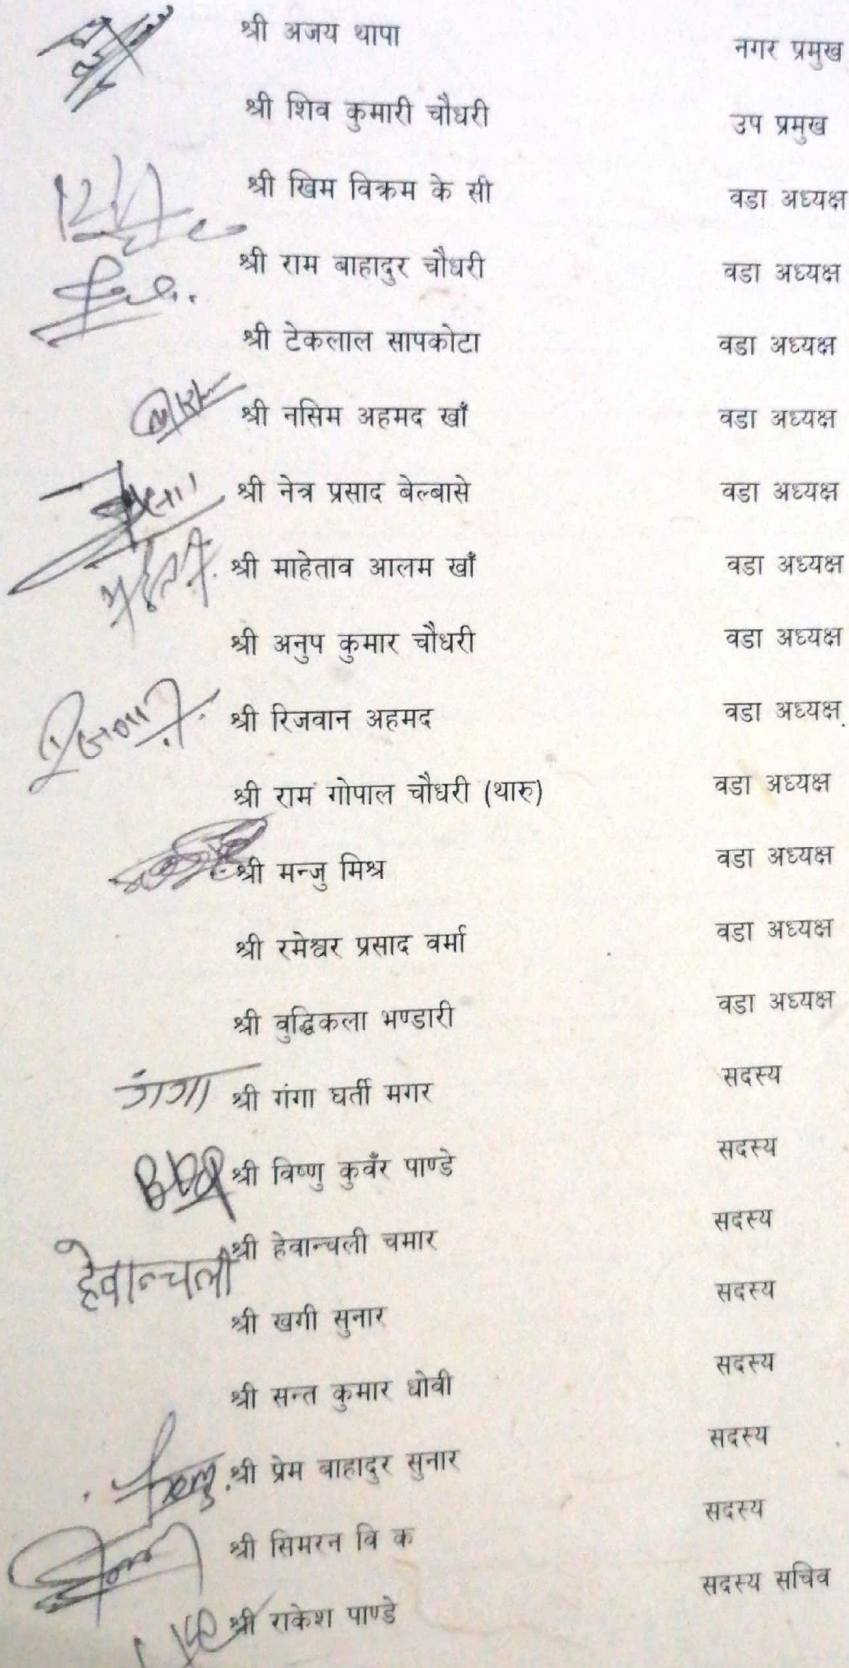 श्री अजय थापा नगर प्रमुख
श्री शिव कुमारी चौधरी उप प्रमुख
श्री खिम विक्रम के सी वडा अध्यक्ष
श्री राम बाहादुर चौधरी वडा अध्यक्ष
श्री टेकलाल सापकोटा वडा अध्यक्ष
श्री नसिम अहमद खाँ वडा अध्यक्ष
श्री नेत्र प्रसाद बेल्बासे वडा अध्यक्ष
श्री माहेताव आलम खाँ वडा अध्यक्ष
श्री अनुप कुमार चौधरी वडा अध्यक्ष
श्री रिजवान अहमद वडा अध्यक्ष
श्री राम गोपाल चौधरी (थारु) वडा अध्यक्ष
श्री मन्जु मिश्र वडा अध्यक्ष
श्री रमेश्वर प्रसाद वर्मा वडा अध्यक्ष
श्री वुद्धिकला भण्डारी वडा अध्यक्ष
गंगा श्री गंगा घर्ती मगर सदस्य
श्री विष्णु कुवँर पाण्डे सदस्य
हेवान्चली श्री हेवान्चली चमार सदस्य
श्री खगी सुनार सदस्य
श्री सन्त कुमार धोवी सदस्य
श्री प्रेम बाहादुर सुनार सदस्य
श्री सिमरन वि क सदस्य
श्री राकेश पाण्डे सदस्य सचिव